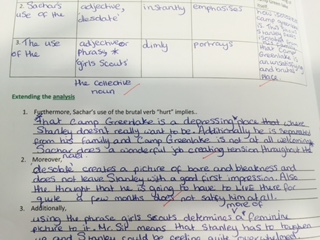 2. Sachar's use of the
adjective, desolate'
instantly
emphasises
3. The use of the
adjective or phrase * girls scouts'
dimly
portrays
that Camp Greenlake is
the collective noun
Extending the analysis
1. Furthermore, Sachar's use of the brutal verb "hurt" implies..
that Camp Greenlake is a depressing place that where
Stanley doesn't really want to be. Additionally he is separated
from his family and Camp Greenlake is not at all welcoming
Sachar does a wonderful job creating tension throughout the
novel
2. Moreover,
desolate creates a picture of bare and bleakness and
does not leave Stanley with a good first impression. Also
the thought that he is going to have to live there for
quite a few months does not satisfy him at all.
3. Additionally,
more of
using the phrase girls scouts determins a feminine
picture to it. Mr Sir means that Stanley has to toughen
up and Stanley could be feeling quite overwhelmed.